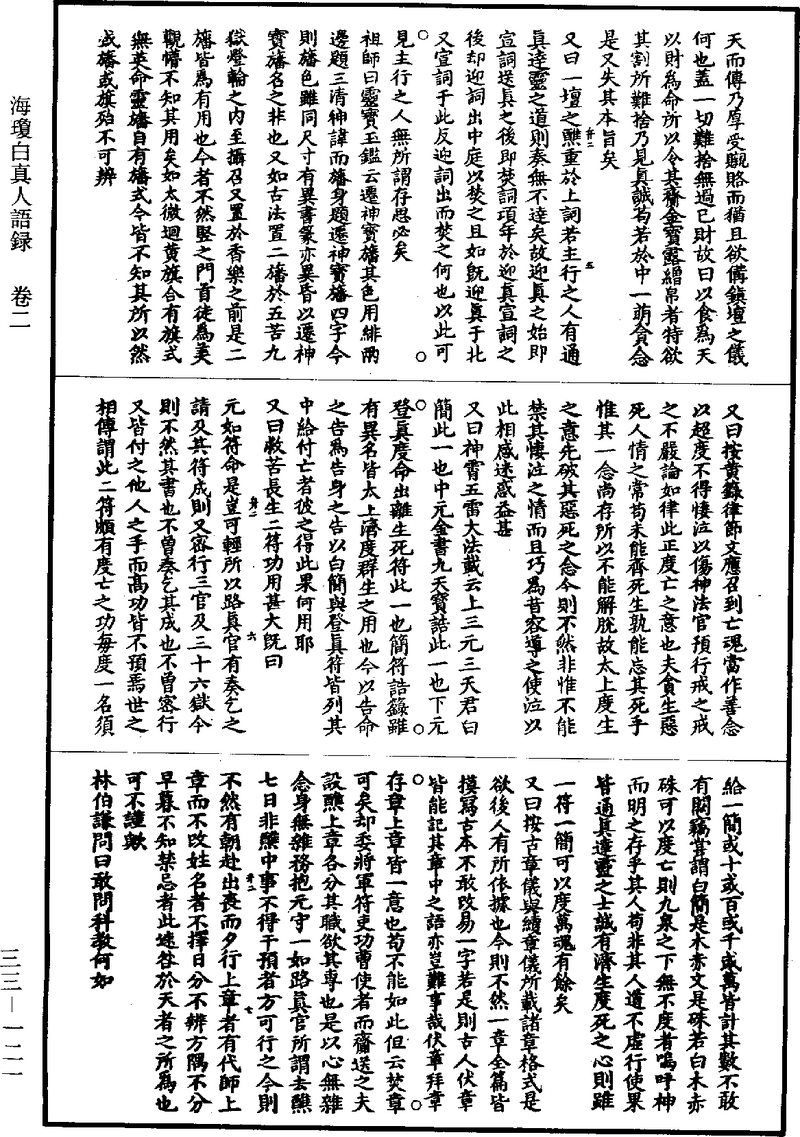 海瓊白真人語録　卷二
天而傳乃厚受覬賂而猶且欲備鎮壇之儀
何也蓋一切難捨無過己財故曰以食為天
以財為命所以令其齎金寶露繒帛者特欲
其割所難捨乃見真誠苟若於中一萌貪念
是又失其本旨矣
又曰一壇之醮重於上詞若主行之人有通
真達靈之道則奏無不達矣故迎真之始即
宣詞送真之後即焚詞頃年於迎真宣詞之
後却迎詞出中庭以焚之且如既迎真于北
又宣詞于此反迎詞出而焚之何也以此可
見主行之人無所謂存思必矣
祖師曰靈寶玉鑑云遷神寶旛其色用緋兩
邊題三清神諱而旛身題遷神寶旛四字今
則旛色雖同尺寸有異書篆亦異皆以遷神
寶旛名之非也又如古法置二旛於五苦九
獄燈輪之内至攝召又置於香樂之前是二
旛皆為有用也今者不然竪之門首徒為美
觀懵不知其用矣如太微迴黄旗合有旗式
無英命靈旛自有旛式今皆不知其所以然
或旛或旗殆不可辨
又曰按黄籙律節文應召到亡魂當作善念
以超度不得悽泣以傷神法官預行戒之戒
之不嚴論如律此正度亡之意也夫貪生惡
死人情之常苟未能齊死生孰能忘其死乎
惟其一念尚存所以不能解脫故太上度生
之意先破其惡死之念今則不然非惟不能
禁其悽泣之情而且巧為昔容導之使泣以
此相感迷惑益甚
又曰神霄五雷大法載云上三元三天君曰
簡此一也中元金書九天寶誥此一也下元
登真度命出離生死符此一也簡符誥籙雖
有異名皆太上濟度群生之用也今以告命
之告為告身之告以白簡與登真符皆列其
中給付亡者彼之得此果何用耶
又曰救苦長生二符功用甚大既曰
元如符命是豈可輕所以路真官有奏乞之
請及其符成則又容行三官及三十六獄今
則不然其書也不曽奏乞其成也不曽容行
又皆付之他人之手而高功皆不預焉世之
相傳謂此二符頗有度亡之功每度一名須
給一簡或十或百或千或萬皆計其數不敢
有闕竊嘗謂白簡是木赤文是硃若白木赤
硃可以度亡則九泉之下無不度者嗚呼神
而明之存乎其人苟非其人道不虛行使果
皆通真達靈之士誠有濟生度死之心則雖
一符一簡可以度萬魂有餘矣
又曰按古章儀與續章儀所載諸章格式是
欲後人有所依據也今則不然一章全篇皆
摸寫古本不敢改易一字若是則古人伏章
皆能記其章中之語亦豈難事哉伏章拜章
存章上章皆一意也苟不能如此但云焚章
可矣却委將軍符吏功曹使者而齎送之夫
設醮上章各分其職欲其專也是以心無雜
念身無雜務抱元守一如路真官所謂去醮
七日非醮中事不得干預者方可行之今則
不然有朝赴出喪而夕行上章者有代師上
章而不改姓名者不擇日分不辨方隅不分
早暮不知禁忌者此速咎於天者之所為也
可不謹歟
林伯謙問曰敢問科教何如
三三一一二一